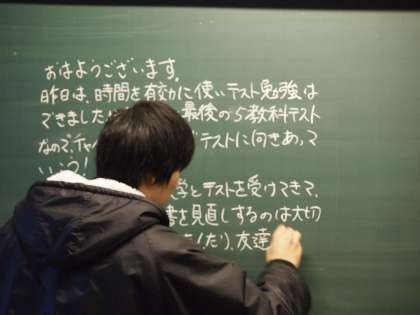 おはようございます。
昨日は、時間を有効に使いテスト勉強は
できました 最後の5教科テスト
なので、チャ テストに向きあって
いこう!
学とテストを受けてきて、
書を見直しするのは大切
したり、友達